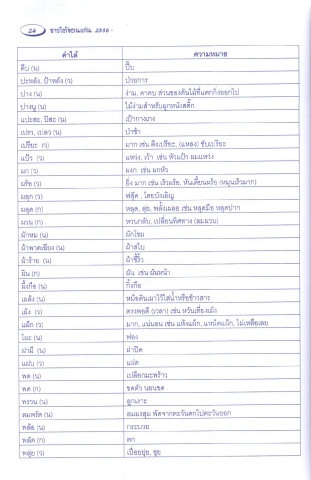 24 ชาวใต้ขอนแก่น 2556
คำใต้ ความหมาย
ปีบ (น) ปี๊บ
ปะหลัง, ป้าหลัง (ว) ป่วยการ
ปาง (น) ง่าม, คาคบ ส่วนของต้นไม้ที่แตกกิ่งออกไป
ปางนู (น) ไม้ง่ามสำหรับผูกหนังสติ๊ก
แปะสะ, ปีสะ (น) เป้ากางเกง
เปรว, เปลว (น) ป่าช้า
เปรียะ (ว) มาก เช่น ตึงเปรียะ, (แหลง) ขับเปรียะ
แป้ว (ว) แหว่ง, เว้า เช่น หัวแป้ว ผมแหว่ง
ผก (ว) ผงก เช่น ผกหัว
ผร็อ (ว) ยิ่ง มาก เช่น เร็วผร็อ, หันเดี้ยนผร็อ (หมุนเร็วมาก)
ผลุก (ว) ฟลุ๊ค , โดยบังเอิญ
ผลูด (ก) หลุด, ลุ่ย, พลั้งเผลอ เช่น หลุดมือ หลุดปาก
ผวน (ก) หวนกลับ, เปลี่ยนทิศทาง (ลมผวน)
ผ้าหม (น) ผักโขม
ผ้าพาดเฉียง (น) ผ้าสไบ
ผ้าร้าย (น) ผ้าขี้ริ้ว
ผิน (ก) ผัน เช่น ผินหน้า
ผึ้งกือ (น) กิ้งกือ
เผล้ง (น) หม้อดินเผาไว้ใส่น้ำหรือข้าวสาร
เผ้ง (ว) ตรงพอดี (เวลา) เช่น หวันเที่ยงเผ้ง
แผ็ก (ว) มาก, แน่นอน เช่น แห้งแผ็ก, แหม็ดแผ็ก, ไม่เหลือเลย
โผะ (น) ฟอง
ฝามี (น) ฝาปิด
แฝบ (ว) แฝด
พด (น) เปลือกมะพร้าว
พด (ก) ขดตัว นอนขด
พรวน (น) ลูกเงาะ
ลมพรัด (น) ลมมรสุม พัดจากตะวันตกไปตะวันออก
พล้อ (น) กระบวย
พลัด (ก) ตก
พลุ่ย (ว) เปื่อยยุ่ย, ซุย